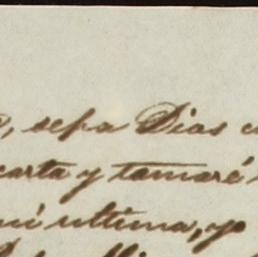 , sepa Dios
carta y tomaré
mi ultima, yo